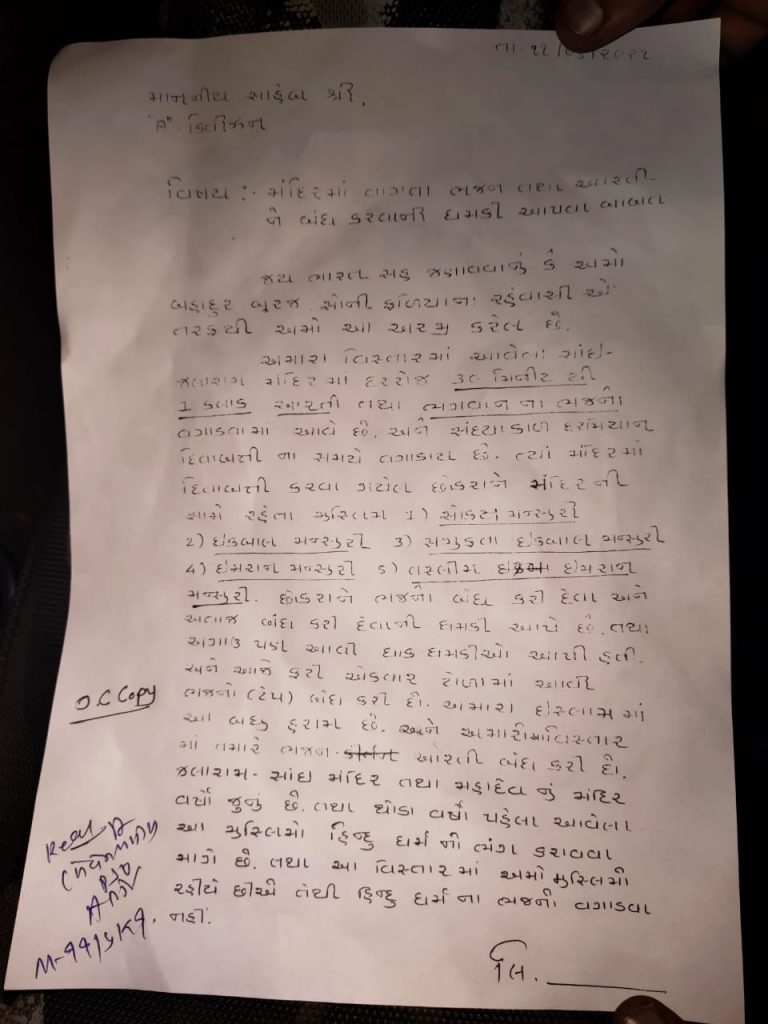 તા. ૧૨/૦૬/૨૦૨૨
માનનીય સાહેબ શ્રી,
"A" ડિવીઝન
વિષય :- મંદિરમાં વાગતા ભજન તથા આરતી-
ને બંધ કરવાની ધમકી આપવા બાબત
જય ભારત સહ જણાવવાનું કે અમો
બહાદુર બૂરજ સોની ફળિયાના રહેવાસી એ
તરફથી અમો આ અરજી કરેલ છે.
અમારા વિસ્તારમાં આવેલા સાંઇ-
જલારામ મંદિરમાં દરરોજ ૩૦ મિનીટ થી
1 કલાક આરતી તથા ભગવાનના ભજનો
વગાડવામાં આવે છે. અને સંધ્યાકાળ દરમિયાન
દિવાબત્તી ના સમયે વગાડાય છે. ત્યાં મંદિરમાં
દિવાબત્તી કરવા ગયેલ છોકરાને મંદિરની
સામે રહેતા મુસ્લિમ 1) મન્સુરી
2) ઇકબાલ મન્સુરી 3) ઇકબાલ મન્સુરી
4) ઇમરાન મન્સુરી ૫) તસ્લીમ ઇમરાન
મન્સુરી. છોકરાને ભજનો બંધ કરી દેવા અને
અવાજ બંધ કરી દેવાની ધમકી આપે છે. તથા
અગાઉ પણ આવી ધાક ધમકીઓ આપી હતી.
અને આજે ફરી એકવાર ટોળામાં આવી
ભજનો (ટેપ) બંધ કરી દો. અમારા ઇસ્લામ માં
આ બધુ હરામ છે. અને અમારા વિસ્તાર
માં તમારે ભજન આરતી બંધ કરી દો.
જલારામ- સાંઇ મંદિર તથા મહાદેવ નું મંદિર
વર્ષો જુનું છે. તથા થોડા વર્ષો પહેલા આવેલા
આ મુસ્લિમો હિન્દુ ધર્મ ની ભંગ કરાવવા
માગે છે. તથા આ વિસ્તાર માં અમો મુસ્લિમો
રહીયે છીએ તેથી હિન્દુ ધર્મ ના ભજનો વગાડવા
નહીં.
O.C Copy
લિ.